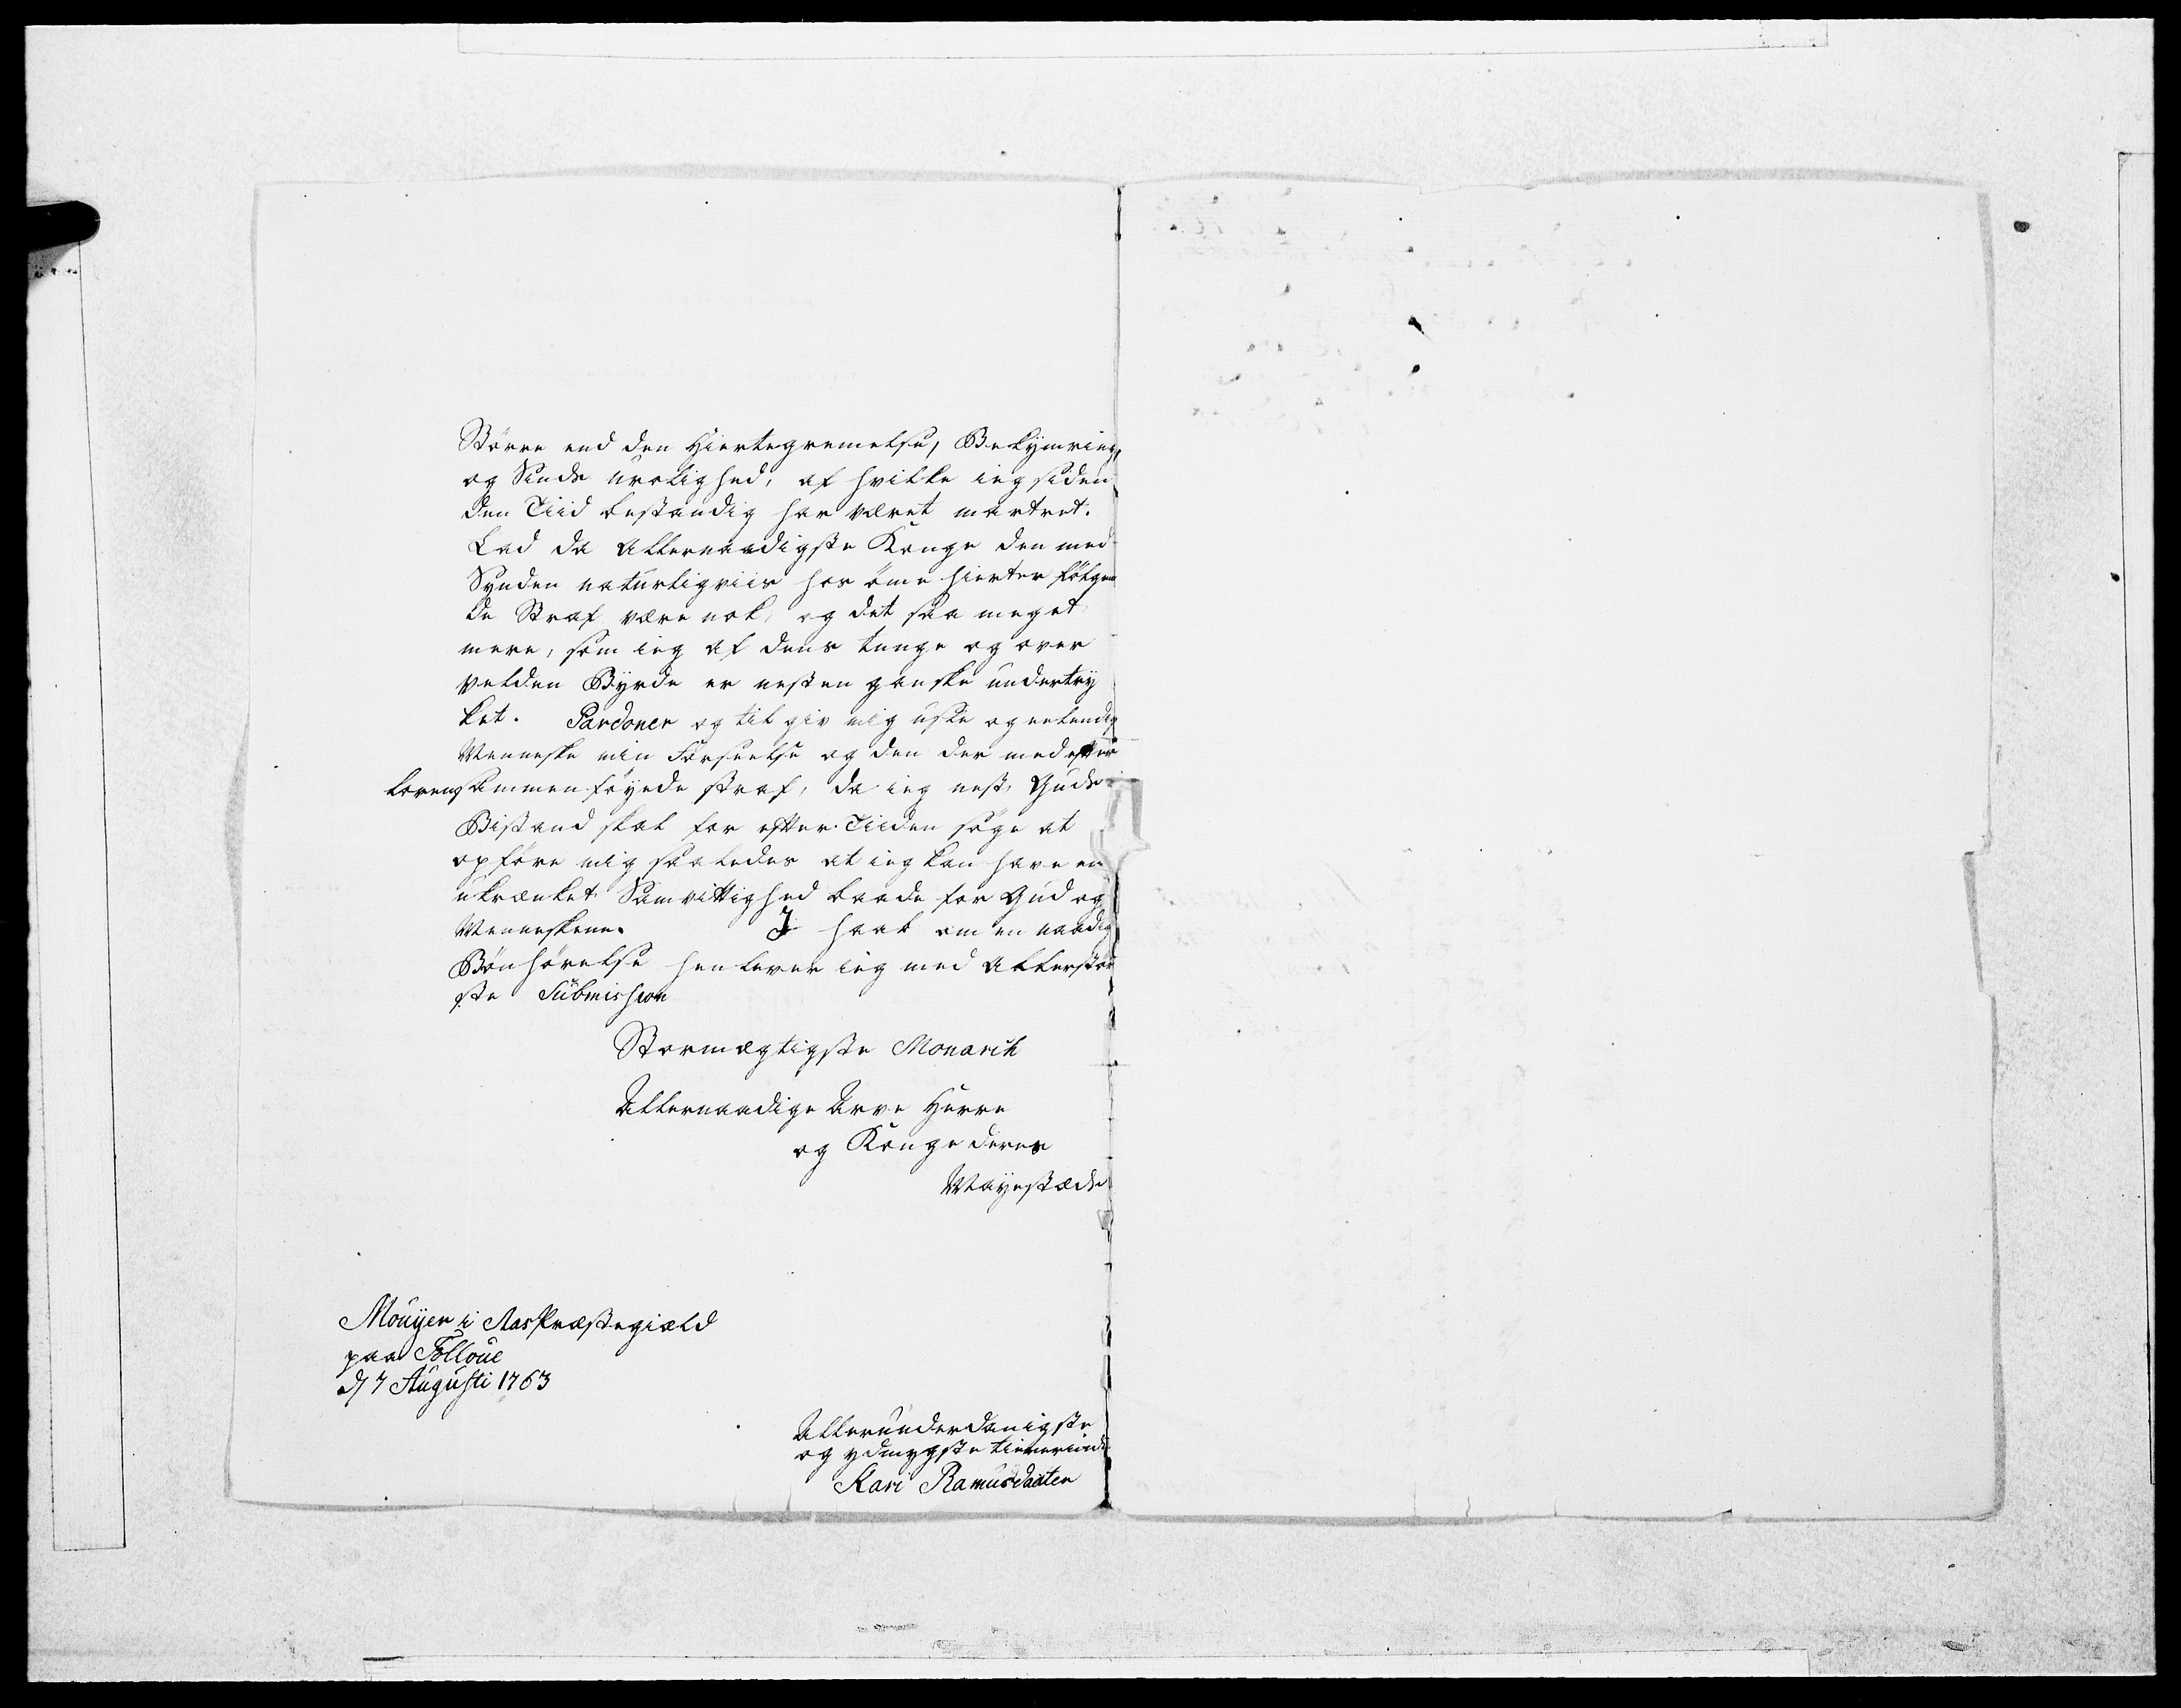 Större end den Hiertegremelse, Bekÿmring,
og Sinds urolighed, af hvilke ieg siden
den Tiid bestandig har været martret.
Lad da Allernaadigste Konge den med
Synden naturligviis hos öme hierter fölgen
de Straf være nok, og det saa meget
mere, som ieg af dens tunge og over
velden Bÿrde er nesten ganske undertrÿ
ket. Pardoner og til giv mig uske og eelendig
Menneske min Forseelse og den der med efter
Loven sammenföÿede straf, da ieg nest Guds
Bistand skal for efter Tiiden söge at
opföre mig saaledes at ieg kan have en
ukrænket Samvittighed baade for Gud og
Menneskene. J haab om en naadig
Bönhörelse henlever ieg med Allerstör
ste Submission
Stormægtigste Monarch
Allernaadige Arve Herre
og Konge deres
Mayestæds
Mouÿer i Aas Præstegiæld
paa Folloue
d 7 Augusti 1763
Allerunderdanigste
og ydmygste tienerinde
Kari Ramusdaater